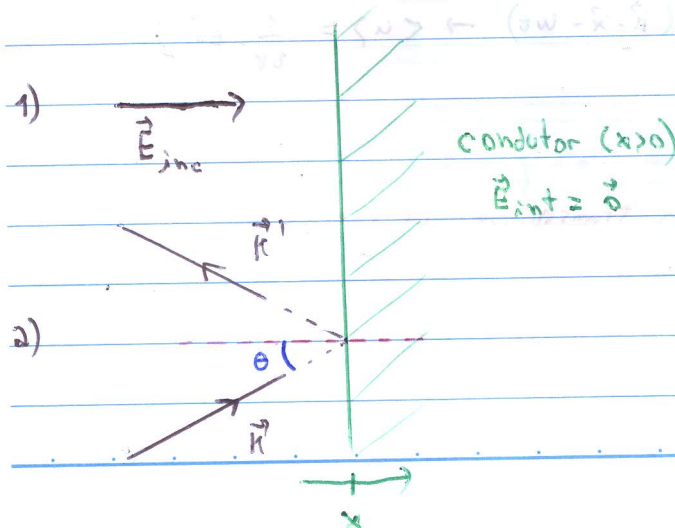 1)
E⃗ inc
condutor (x>0)
E⃗ int = 0⃗
k⃗'
2)
θ
k⃗
x